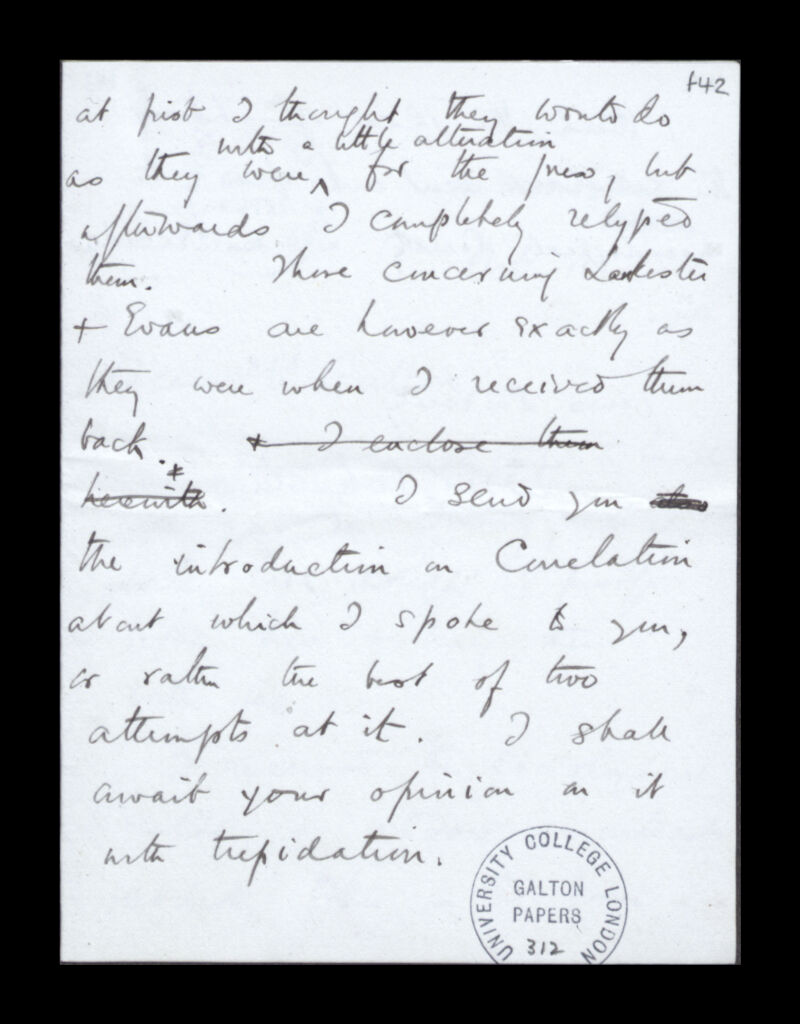 f42
at first I thought they would do
with a little alteration
as they were, for the press, but
afterwards I completely retyped
them. Those concerning Lankester
+ Evans are however exactly as
they were when I received them
back. + I enclose them
herewith. I send you
the introduction on Correlation
about which I spoke to you,
or rather the best of two
attempts at it. I shall
await your opinion on it
with trepidation.
UNIVERSITY COLLEGE LONDON
GALTON
PAPERS
312